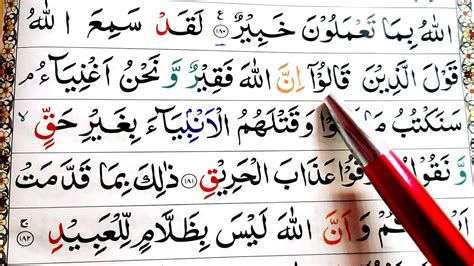 اللهُ بِمَا تَعْمَلُوْنَ خَبِيْرٌ ع ١٨٠ لَقَدْ سَمِعَ اللهُ
قَوْلَ الَّذِيْنَ قَالُوْۤا اِنَّ اللهَ فَقِيْرٌ وَّ نَحْنُ اَغْنِيَآءُ م
سَنَكْتُبُ وَقَتْلَهُمُ الْاَنْۢبِيَآءَ بِغَيْرِ حَقٍّ لا
وَّ نَقُوْلُ عَذَابَ الْحَرِيْقِ ١٨١ ذٰلِكَ بِمَا قَدَّمَتْ
وَ اَنَّ اللهَ لَيْسَ بِظَلَّامٍ لِّلْعَبِيْدِ ج ١٨٢